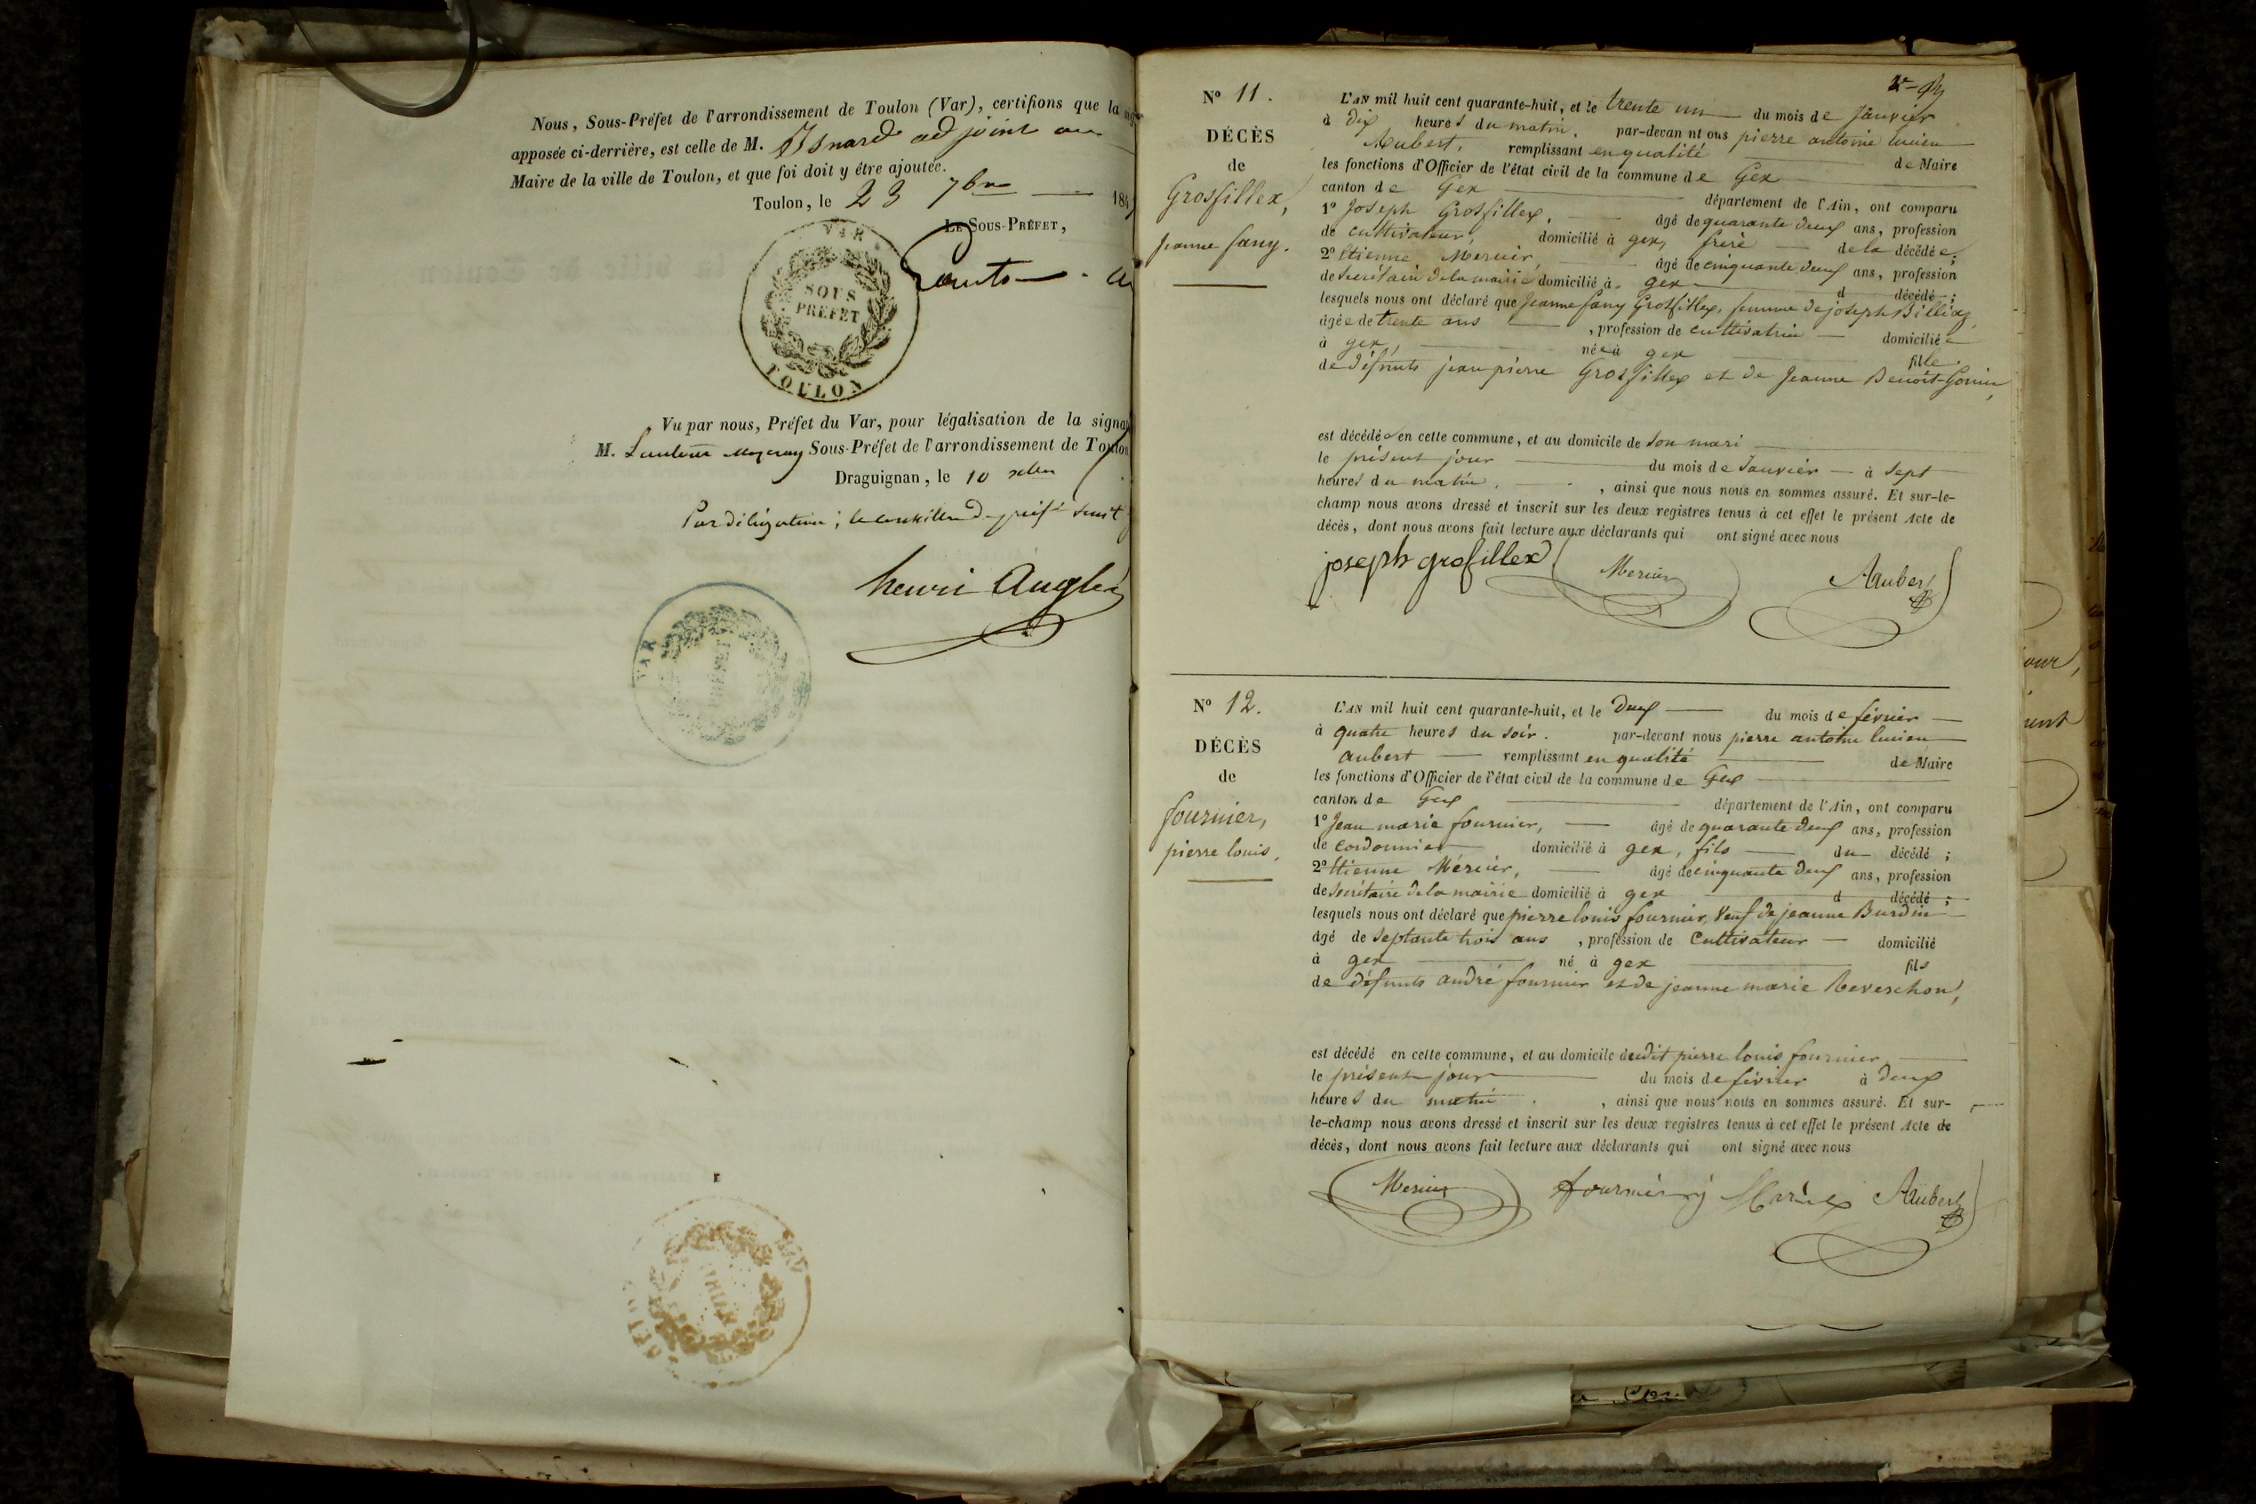 Nous, Sous-Préfet de l'arrondissement de Toulon (Var), certifions que la
apposée ci-derrière, est celle de M. Isnard adjoint au
Maire de la ville de Toulon, et que foi doit y être ajoutée.
Toulon, le 23 7bre 184
LE SOUS-PRÉFET,
VAR
SOUS
PRÉFET
TOULON
Vu par nous, Préfet du Var, pour légalisation de la signa
M. Sous-Préfet de l'arrondissement de Toulon
Draguignan, le 10
Par délégation; le conseiller de préfre
henri Anglès
VAR
Nº 11.
DÉCÈS
de
Grosfillex,
jeanne fany.
L'AN mil huit cent quarante-huit, et le trente un du mois de janvier
à dix heures du matin. par-devan nt ous pierre antoine lucien
Aubert, remplissant en qualité de Maire
les fonctions d'Officier de l'état civil de la commune de Gex
canton de Gex département de l'Ain, ont comparu
1º Joseph Grosfillex, âgé de quarante deux ans, profession
de cultivateur, domicilié à gex, frère de la décédée;
2º Etienne Mercier, âgé de cinquante deux ans, profession
de secrétaire de la mairie domicilié à gex d décédé;
lesquels nous ont déclaré que Jeanne fany Grosfillex, femme de joseph Billiaz,
âgée de trente ans, profession de cultivatrice domiciliée
à gex, née à gex fille
de défunts jean pierre Grosfillex et de Jeanne Benoit-Gonin,
est décédée en cette commune, et au domicile de son mari
le présent jour du mois de Janvier à sept
heures du matin. , ainsi que nous nous en sommes assuré. Et sur-le-
champ nous avons dressé et inscrit sur les deux registres tenus à cet effet le présent Acte de
décès, dont nous avons fait lecture aux déclarants qui ont signé avec nous
joseph grosfillex Mercier Aubert
Nº 12.
DÉCÈS
de
fournier,
pierre louis.
L'AN mil huit cent quarante-huit, et le deux du mois de février
à quatre heures du soir. par-devant nous pierre antoine lucien
aubert remplissant en qualité de Maire
les fonctions d'Officier de l'état civil de la commune de Gex
canton de Gex département de l'Ain, ont comparu
1º Jean marie fournier, âgé de quarante deux ans, profession
de cordonnier domicilié à gex, fils du décédé;
2º Etienne Mercier, âgé de cinquante deux ans, profession
de secrétaire de la mairie domicilié à gex d décédé;
lesquels nous ont déclaré que pierre louis fournier, veuf de jeanne Burdin
âgé de septante trois ans, profession de cultivateur domicilié
à gex né à gex fils
de défunts andré fournier et de jeanne marie Reverchon,
est décédé en cette commune, et au domicile dudit pierre louis fournier
le présent jour du mois de février à deux
heures du matin. , ainsi que nous nous en sommes assuré. Et sur-
le-champ nous avons dressé et inscrit sur les deux registres tenus à cet effet le présent Acte de
décès, dont nous avons fait lecture aux déclarants qui ont signé avec nous
Mercier fournier j Marie Aubert